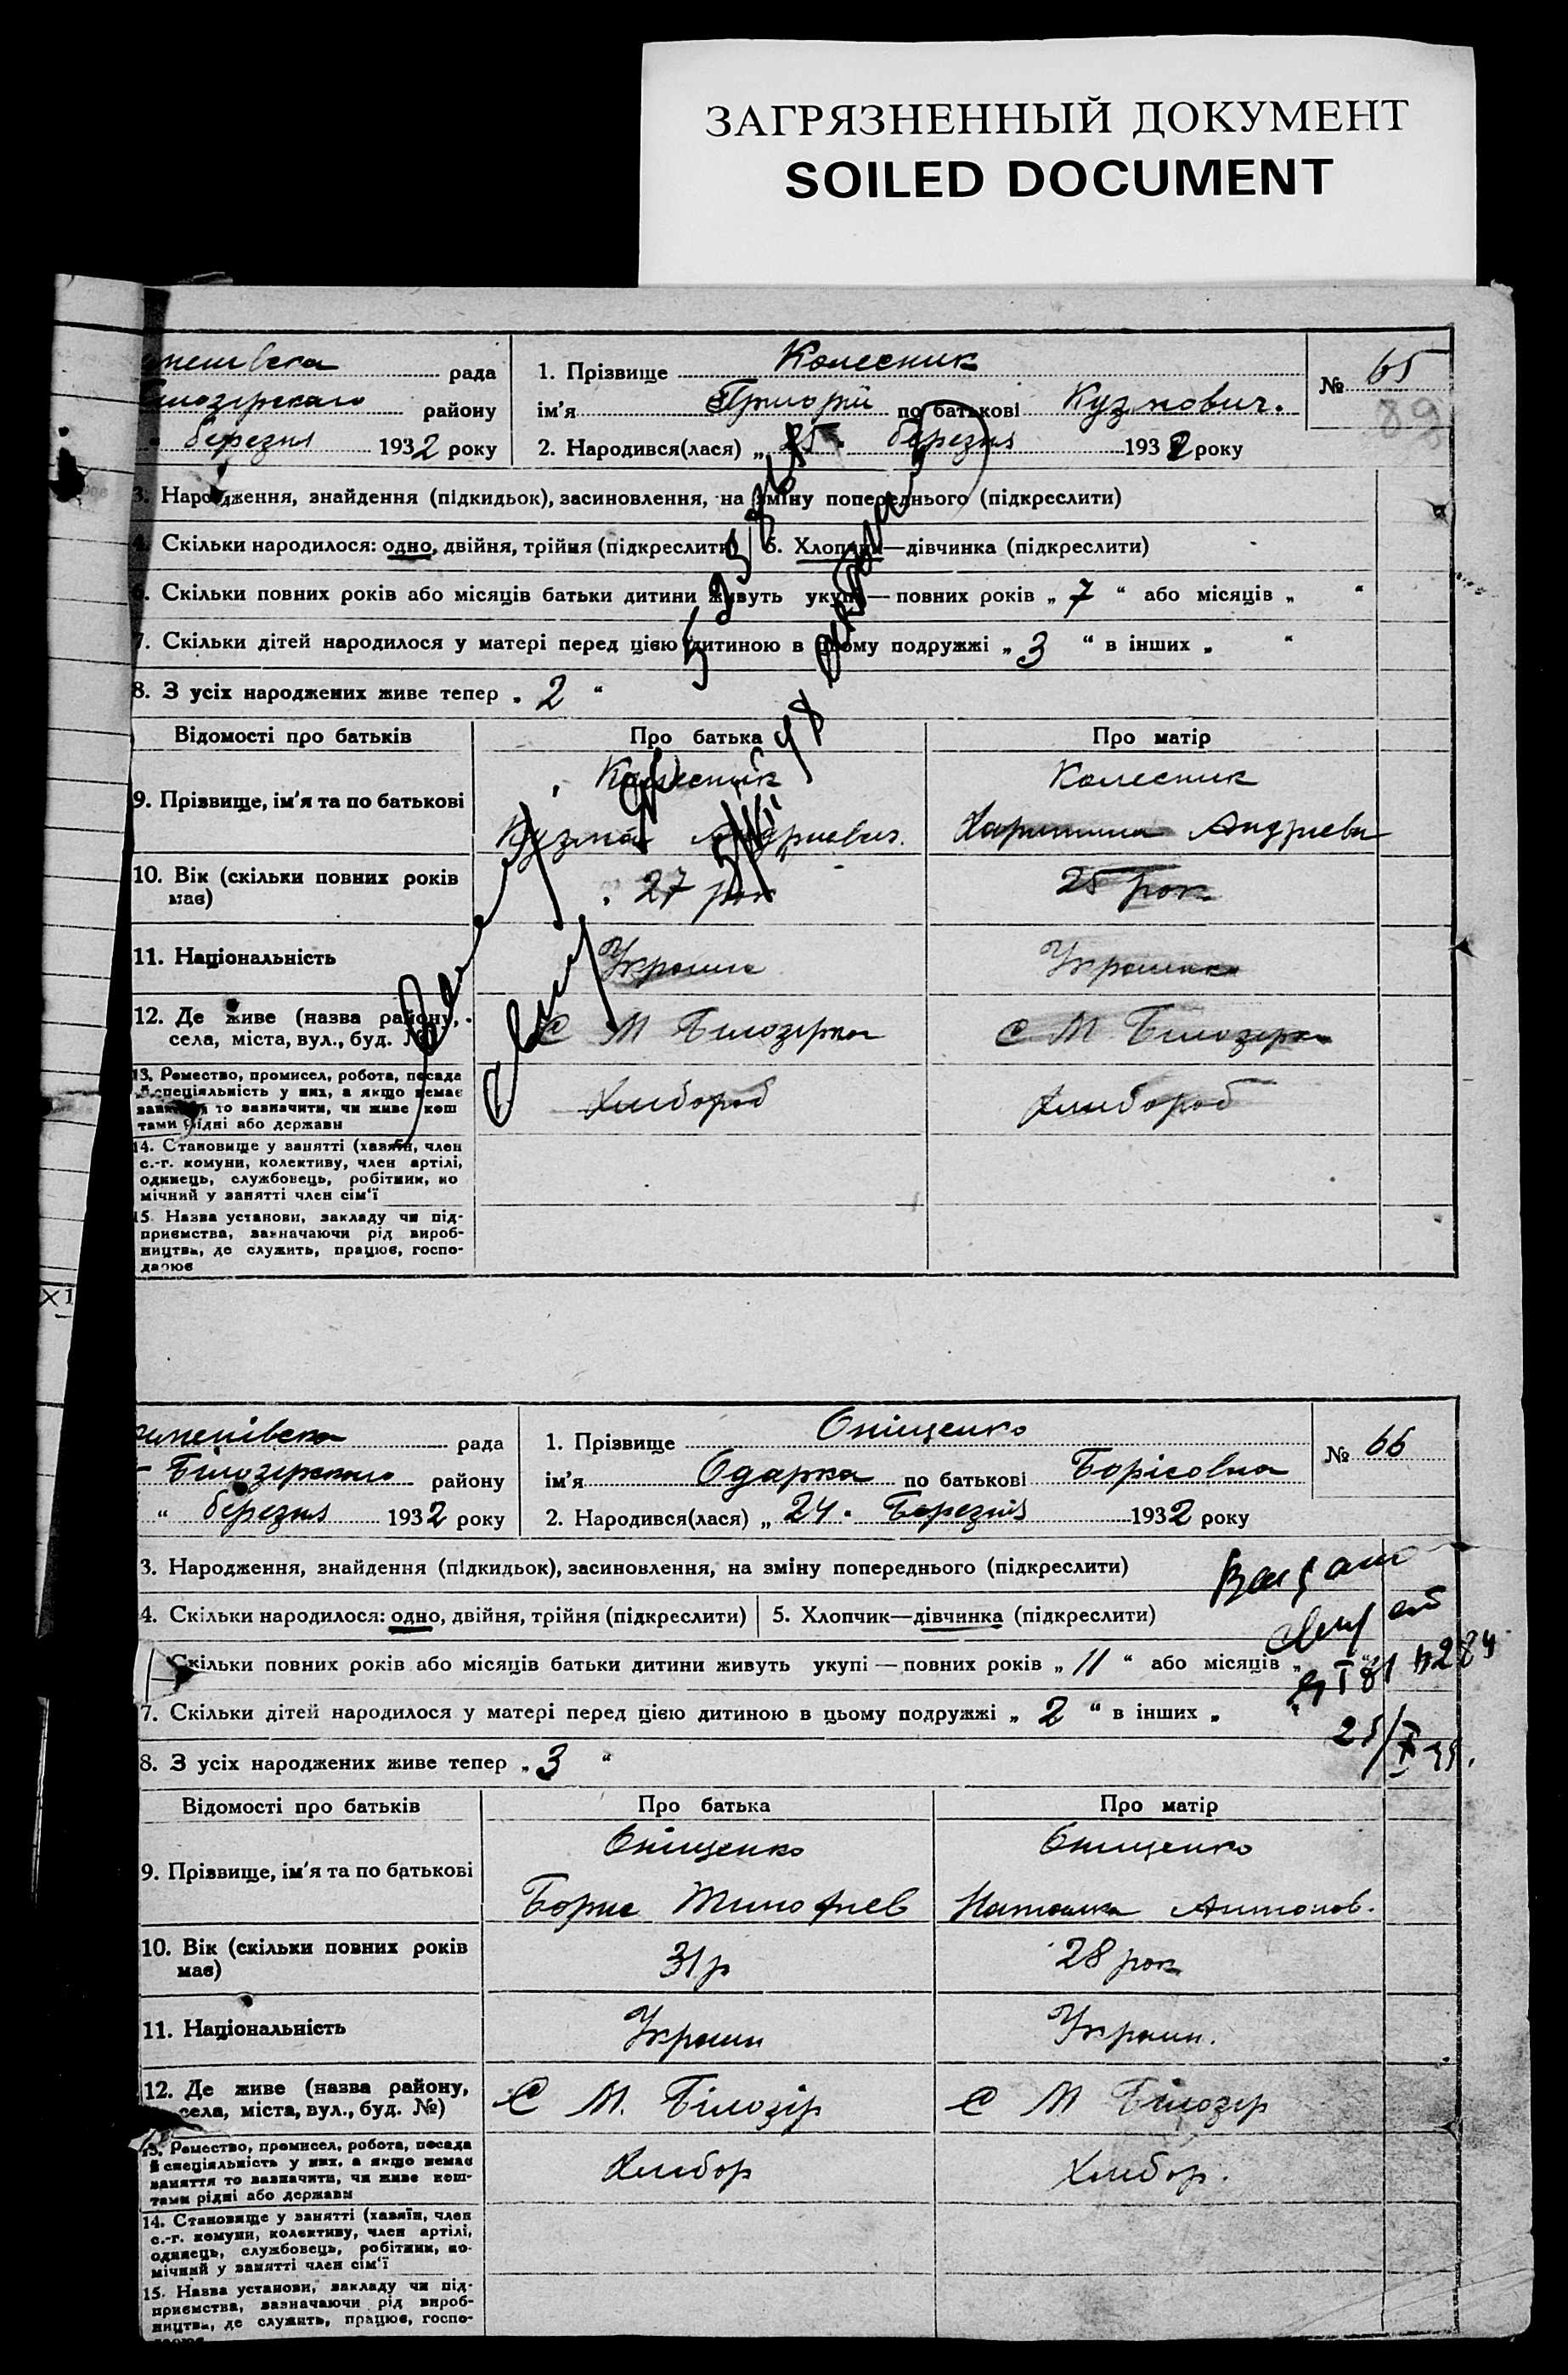 ЗАГРЯЗНЕННЫЙ ДОКУМЕНТ
SOILED DOCUMENT
рада
1. Прізвище Колесник
№ 65
89
району
ім'я Григорій по батькові Кузмович.
березня 1932 року
2. Народився(лася) „ 25 березня 1932 року
3. Народження, знайдення (підкидьок), засиновлення, на зміну попереднього (підкреслити)
4. Скільки народилося: одно, двійня, трійня (підкреслити)
5. Хлопчик—дівчинка (підкреслити)
6. Скільки повних років або місяців батьки дитини живуть укупі — повних років „ 7 “ або місяців „ “
7. Скільки дітей народилося у матері перед цією дитиною в цьому подружжі „ 3 “ в інших „ “
8. З усіх народжених живе тепер „ 2 “
Відомості про батьків
Про батька
Про матір
9. Прізвище, ім'я та по батькові
Колесник
Колесник
Кузма
10. Вік (скільки повних років має)
27 рок
25 рок
11. Національність
12. Де живе (назва району, села, міста, вул., буд. №)
С М Білозірка
С М Білозірка
13. Ремество, промисел, робота, посада
й спеціяльність у них, а якщо немає
заняття то зазначити, чи живе кош
тами рідні або держави
Хлибороб
Хлибороб
14. Становище у занятті (хазяїн, член
с.-г. комуни, колективу, член артілі,
одинець, службовець, робітник, по
мічний у занятті член сім'ї
15. Назва установи, закладу чи під-
приємства, зазначаючи рід вироб-
ництва, де служить, працює, госпо-
дарює
рада
1. Прізвище Оніщенко
№ 66
Білозірського району
ім'я Одарка по батькові Борісовна
“ березня 1932 року
2. Народився(лася) „ 24 Березня 1932 року
3. Народження, знайдення (підкидьок), засиновлення, на зміну попереднього (підкреслити)
4. Скільки народилося: одно, двійня, трійня (підкреслити)
5. Хлопчик—дівчинка (підкреслити)
Скільки повних років або місяців батьки дитини живуть укупі — повних років „ 11 “ або місяців „
7. Скільки дітей народилося у матері перед цією дитиною в цьому подружжі „ 2 “ в інших „ “
8. З усіх народжених живе тепер „ 3 “
Відомості про батьків
Про батька
Про матір
9. Прізвище, ім'я та по батькові
Оніщенко
Онищенко
Борис Тимофиев
Антонов.
10. Вік (скільки повних років має)
31 р
28 рок
11. Національність
Украин
Украин.
12. Де живе (назва району, села, міста, вул., буд. №)
С М. Білозір
С М Білозір
13. Ремество, промисел, робота, посада
й спеціяльність у них, а якщо немає
заняття то зазначити, чи живе кош-
тами рідні або держави
Хлибор
Хлибор.
14. Становище у занятті (хазяїн, член
с.-г. комуни, колективу, член артілі,
одинець, службовець, робітник, по-
мічний у занятті член сім'ї
15. Назва установи, закладу чи під-
приємства, зазначаючи рід вироб-
ництва, де служить, працює, госпо-